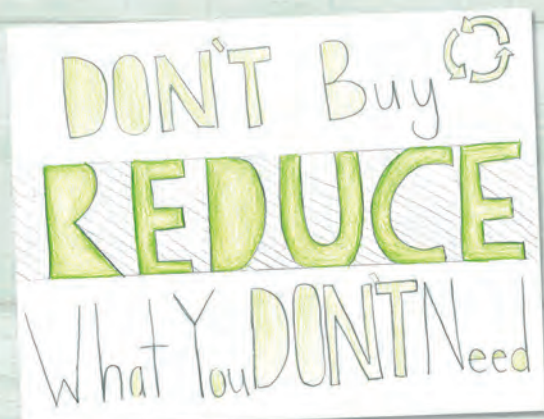 DON'T Buy
REDUCE
What You DON'T Need